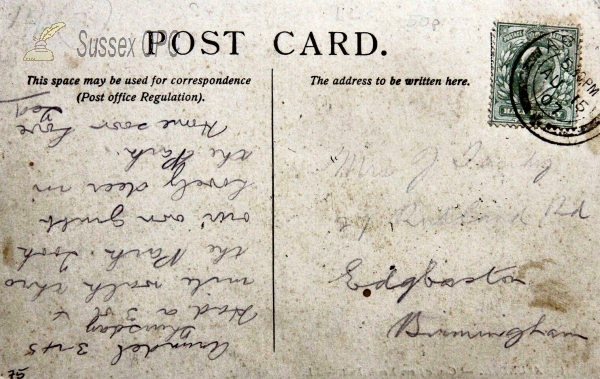 Sussex OPC
POST CARD.
This space may be used for correspondence
(Post office Regulation).
The address to be written here.
Arundel 3.45
Thursday
Had a 3
mile walk thro
the Park. Took
our own grub
Lovely deer in
the Park.
Home soon Love
Mrs J
Rd
Edgbaston
Birmingham